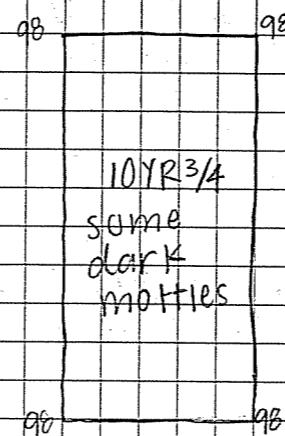 98 98
10YR 3/4
some
dark
mottles
98 98